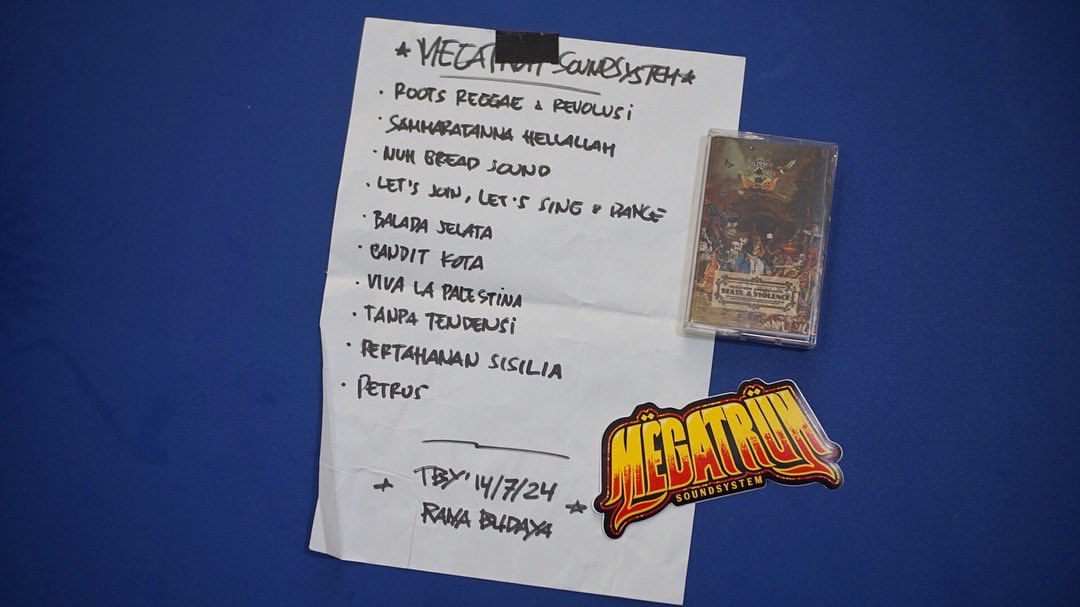 ★ MEGATRUH SOUNDSYSTEM ★
• ROOTS REGGAE & REVOLUSI
• SAMMARATANNA HELLALLAH
• NUH BREAD SOUND
• LET'S JOIN, LET'S SING & DANCE
• BALADA JELATA
• BANDIT KOTA
• VIVA LA PALESTINA
• TANPA TENDENSI
• PERTAHANAN SISILIA
• PETRUS
★ TBY' 14/7/24 ★
RANA BUDAYA
STATE & VIOLENCE
MËGATRÜH
SOUNDSYSTEM